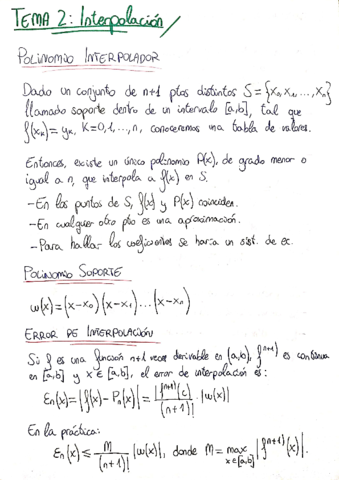 TEMA 2: Interpolación
POLINOMIO INTERPOLADOR
Dado un conjunto de n+1 ptos distintos S={x₀, x₁, ..., xₙ}
llamado soporte dentro de un intervalo [a,b], tal que
f(xₖ)=yₖ, K=0,1,...,n, conoceremos una tabla de valores.
Entonces, existe un único polinomio P(x), de grado menor o
igual a n, que interpola a f(x) en S.
-En los puntos de S, f(x) y P(x) coinciden.
-En cualquier otro pto es una aproximación.
-Para hallar los coeficientes se haría un sist. de ec.
POLINOMIO SOPORTE
ω(x)=(x-x₀)(x-x₁)...(x-xₙ)
ERROR DE INTERPOLACIÓN
Si f es una función n+1 veces derivable en (a,b), f⁽ⁿ⁺¹⁾ es continua
en [a,b] y x∈[a,b], el error de interpolación es:
Eₙ(x)=|f(x)-Pₙ(x)|=|f⁽ⁿ⁺¹⁾(c)|/(n+1)! · |ω(x)|
En la práctica:
Eₙ(x)≤ M/(n+1)! |ω(x)|, donde M=max x∈[a,b] |f⁽ⁿ⁺¹⁾(x)|.